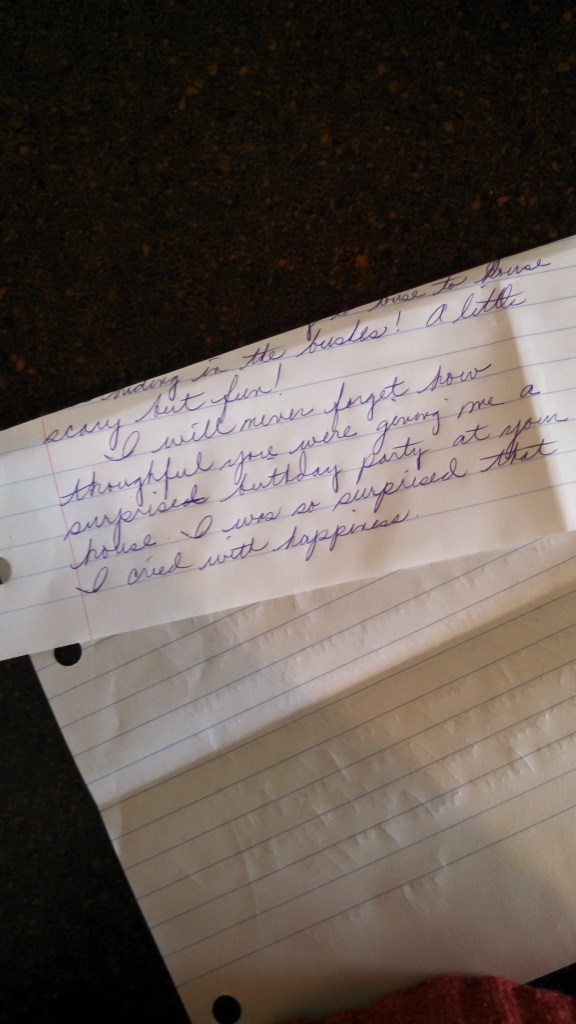 house to house
hiding in the bushes! A little
scary but fun!
I will never forget how
thoughful you were giving me a
surprised buthday party at your
house. I was so surprised that
I cried with happiness.